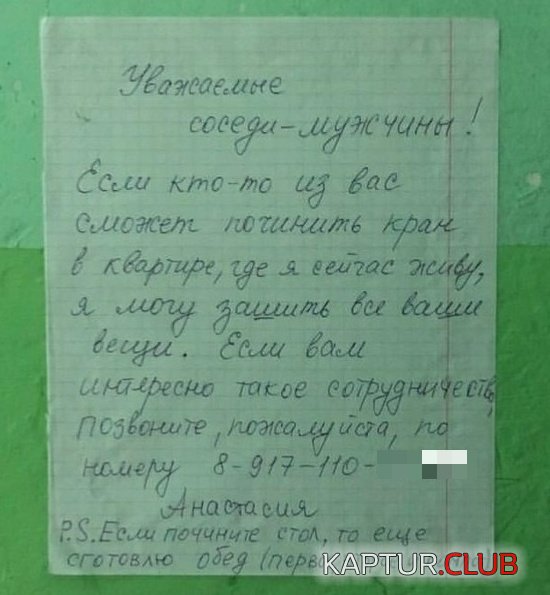 Уважаемые
соседи-мужчины!
Если кто-то из вас
сможет починить кран
в квартире, где я сейчас живу,
я могу зашить все ваши
вещи. Если вам
интересно такое сотрудничество,
позвоните, пожалуйста, по
номеру 8-917-110-
Анастасия
P.S. Если почините стол, то еще
сготовлю обед
KAPTUR.CLUB